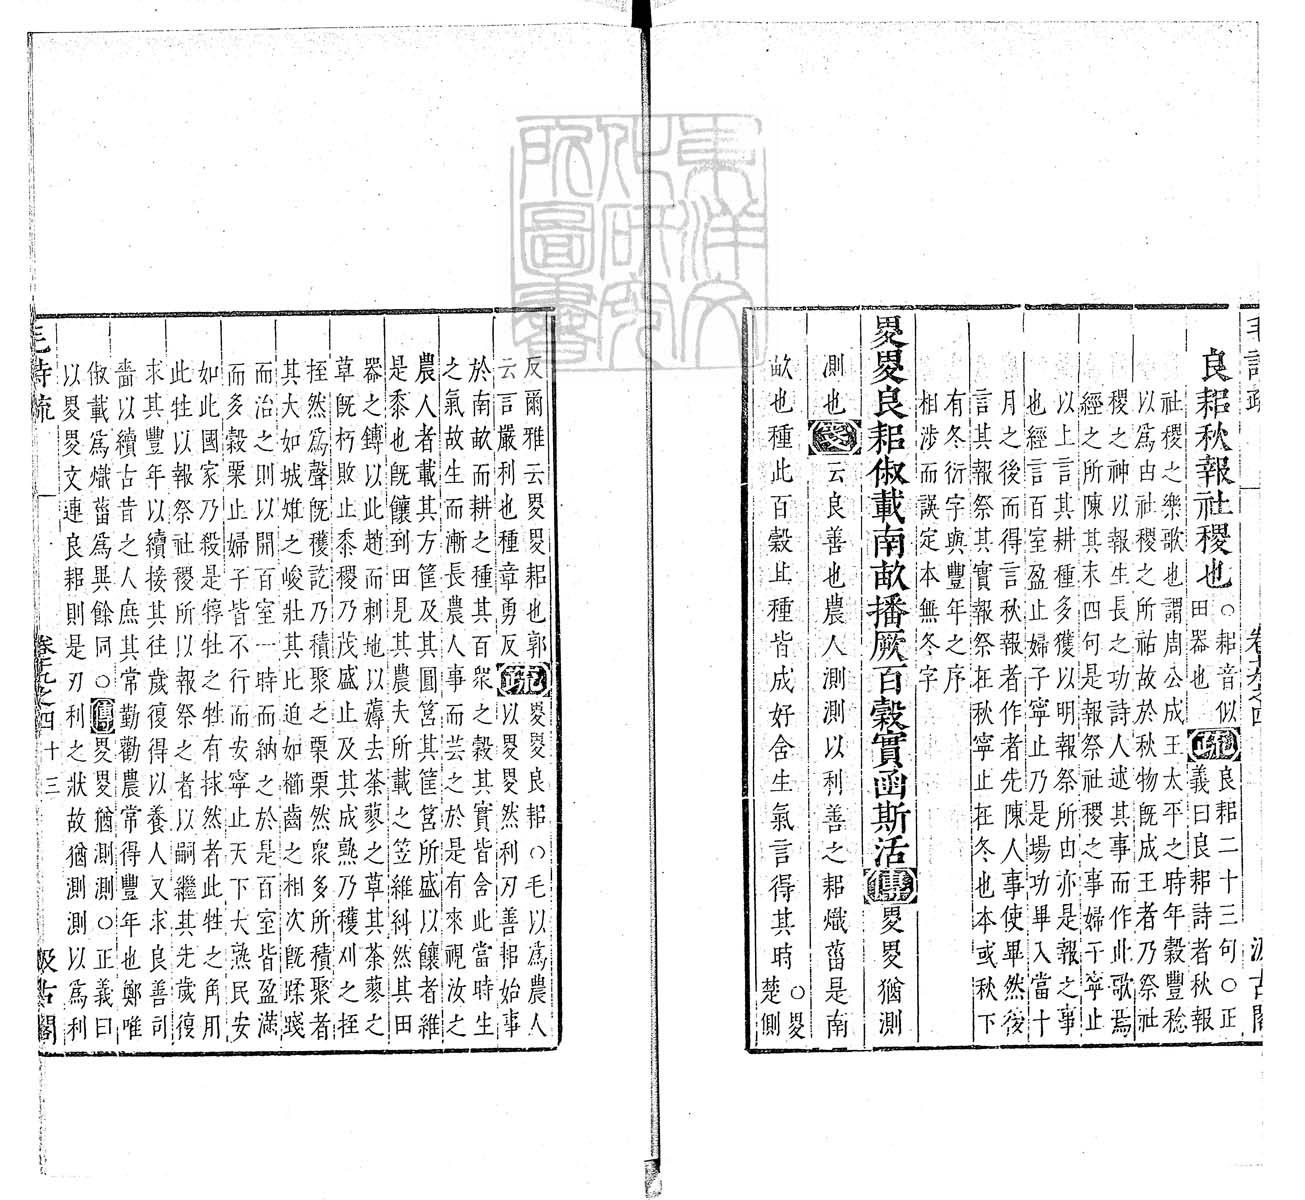 毛詩疏
卷十九之四
汲古閣
良耜秋報社稷也
○耜音似
田器也
疏
良耜二十三句○正
義曰良耜詩者秋報
社稷之樂歌也謂周公成王太平之時年穀豐稔
以爲由社稷之所祐故於秋物既成王者乃祭社
稷之神以報生長之功詩人述其事而作此歌焉
經之所陳其末四句是報祭社稷之事婦子寧止
以上言其耕種多獲以明報祭所由亦是報之事
也經言百室盈止婦子寧止乃是場功畢入當十
月之後而得言秋報者作者先陳人事使畢然後
言其報祭其實報祭在秋寧止在冬也本或秋下
有冬衍字與豐年之序
相涉而誤定本無冬字
畟畟良耜俶載南畝播厥百穀實函斯活
傳
畟畟猶測
測也
箋
云良善也農人測測以利善之耜熾菑是南
畝也種此百穀其種皆成好含生氣言得其時
○畟
楚側
反爾雅云畟畟耜也郭
云言嚴利也種章勇反
疏
畟畟良耜○毛以爲農人
以畟畟然利刃善耜始事
於南畝而耕之種其百衆之穀其實皆含此當時生
之氣故生而漸長農人事而芸之於是有來視汝之
農人者載其方筐及其圓筥其筐筥所盛以饟者維
是黍也既饟到田見其農夫所載之笠維糾然其田
器之鎛以此趙而刺地以薅去荼蓼之草其荼蓼之
草既朽敗止黍稷乃茂盛止及其成熟乃穫刈之挃
挃然爲聲既穫訖乃積聚之栗栗然衆多所積聚者
其大如城雉之峻壯其比迫如櫛齒之相次既蹂踐
而治之則以開百室一時而納之於是百室皆盈滿
而多穀粟止婦子皆不行而安寧止天下大熟民安
如此國家乃殺是犉牡之牲有捄然者此牲之角用
此牲以報祭社稷所以報祭之者以嗣繼其先歲復
求其豐年以續接其往歲復得以養人又求良善司
嗇以續古昔之人庶其常勤勸農常得豐年也鄭唯
俶載爲熾菑爲異餘同○
傳
畟畟猶測測○正義曰
以畟畟文連良耜則是刃利之狀故猶測測以爲利
毛詩疏
卷十九之四
十三
汲古閣
東洋文
化研究
所圖書